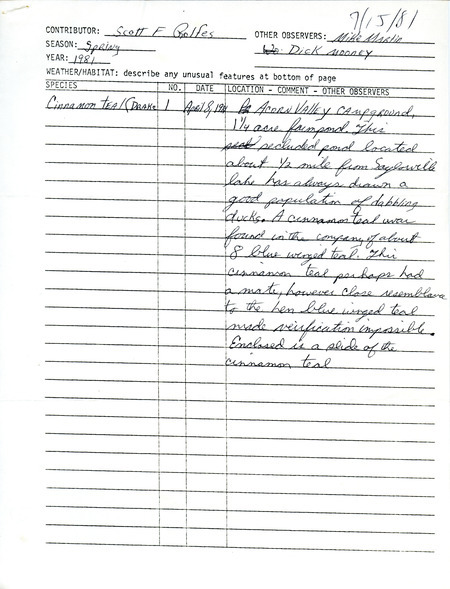 7/15/81
CONTRIBUTOR: Scott F Rolfes OTHER OBSERVERS: Mike Martin
SEASON: Spring Dick Mooney
YEAR: 1981
WEATHER/HABITAT: describe any unusual features at bottom of page
SPECIES NO. DATE LOCATION - COMMENT - OTHER OBSERVERS
Cinnamon Teal (Drake 1 April 9, 1981 Acorn Valley Campground,
1 1/4 acre farmpond. This
secluded pond located
about 1/2 mile from Saylorville
lake has always drawn a
good population of dabbling
ducks. A cinnamon teal was
found in the company of about
8 blue winged teal. This
cinnamon teal perhaps had
a mate, however close resemblance
to the hen blue winged teal
made verification impossible.
Enclosed is a slide of the
cinnamon teal